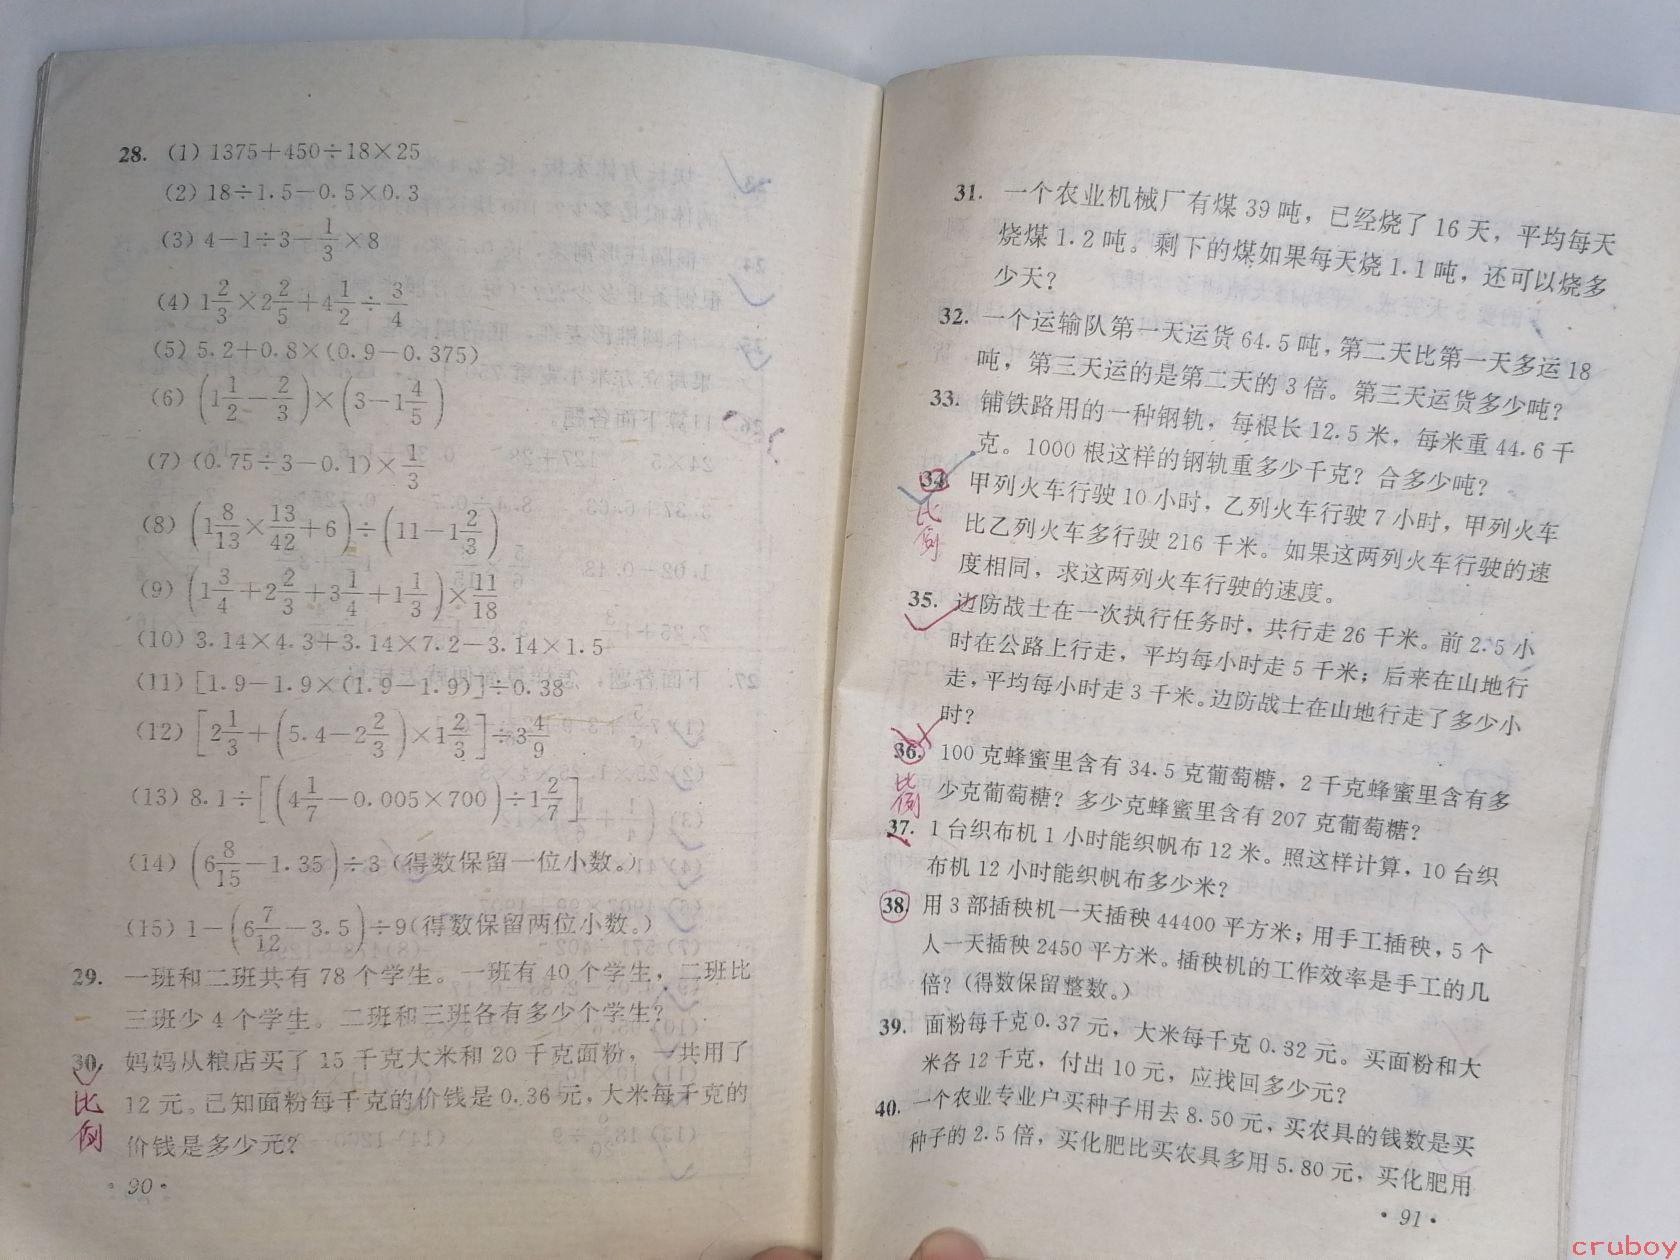 28. (1) 1375+450÷18×25
(2) 18÷1.5-0.5×0.3
(3) 4-1÷3-1/3×8
(4) 1 2/3×2 2/5+4 1/2÷3/4
(5) 5.2+0.8×(0.9-0.375)
(6) (1 1/2-2/3)×(3-1 4/5)
(7) (0.75÷3-0.1)×1/3
(8) (1 8/13×13/42+6)÷(11-1 2/3)
(9) (1 3/4+2 2/3+3 1/4+1 1/3)×11/18
(10) 3.14×4.3+3.14×7.2-3.14×1.5
(11) [1.9-1.9×(1.9-1.9)]÷0.38
(12) [2 1/3+(5.4-2 2/3)×1 2/3]÷3 4/9
(13) 8.1÷[(4 1/7-0.005×700)÷1 2/7]
(14) (6 8/15-1.35)÷3(得数保留一位小数。)
(15) 1-(6 7/12-3.5)÷9(得数保留两位小数。)
29. 一班和二班共有 78 个学生。一班有 40 个学生，二班比
三班少 4 个学生。二班和三班各有多少个学生？
30. 妈妈从粮店买了 15 千克大米和 20 千克面粉，一共用了
比例
12 元。已知面粉每千克的价钱是 0.36 元，大米每千克的
价钱是多少元？
·90·
31. 一个农业机械厂有煤 39 吨，已经烧了 16 天，平均每天
烧煤 1.2 吨。剩下的煤如果每天烧 1.1 吨，还可以烧多
少天？
32. 一个运输队第一天运货 64.5 吨，第二天比第一天多运 18
吨，第三天运的是第二天的 3 倍。第三天运货多少吨？
33. 铺铁路用的一种钢轨，每根长 12.5 米，每米重 44.6 千
克。1000 根这样的钢轨重多少千克？合多少吨？
34. 甲列火车行驶 10 小时，乙列火车行驶 7 小时，甲列火车
比例
比乙列火车多行驶 216 千米。如果这两列火车行驶的速
度相同，求这两列火车行驶的速度。
35. 边防战士在一次执行任务时，共行走 26 千米。前 2.5 小
时在公路上行走，平均每小时走 5 千米；后来在山地行
走，平均每小时走 3 千米。边防战士在山地行走了多少小
时？
36. 100 克蜂蜜里含有 34.5 克葡萄糖，2 千克蜂蜜里含有多
比例
少克葡萄糖？多少克蜂蜜里含有 207 克葡萄糖？
37. 1 台织布机 1 小时能织帆布 12 米。照这样计算，10 台织
布机 12 小时能织帆布多少米？
38. 用 3 部插秧机一天插秧 44400 平方米；用手工插秧，5 个
人一天插秧 2450 平方米。插秧机的工作效率是手工的几
倍？(得数保留整数。)
39. 面粉每千克 0.37 元，大米每千克 0.32 元。买面粉和大
米各 12 千克，付出 10 元，应找回多少元？
40. 一个农业专业户买种子用去 8.50 元，买农具的钱数是买
种子的 2.5 倍，买化肥比买农具多用 5.80 元，买化肥用
·91·
cruboy